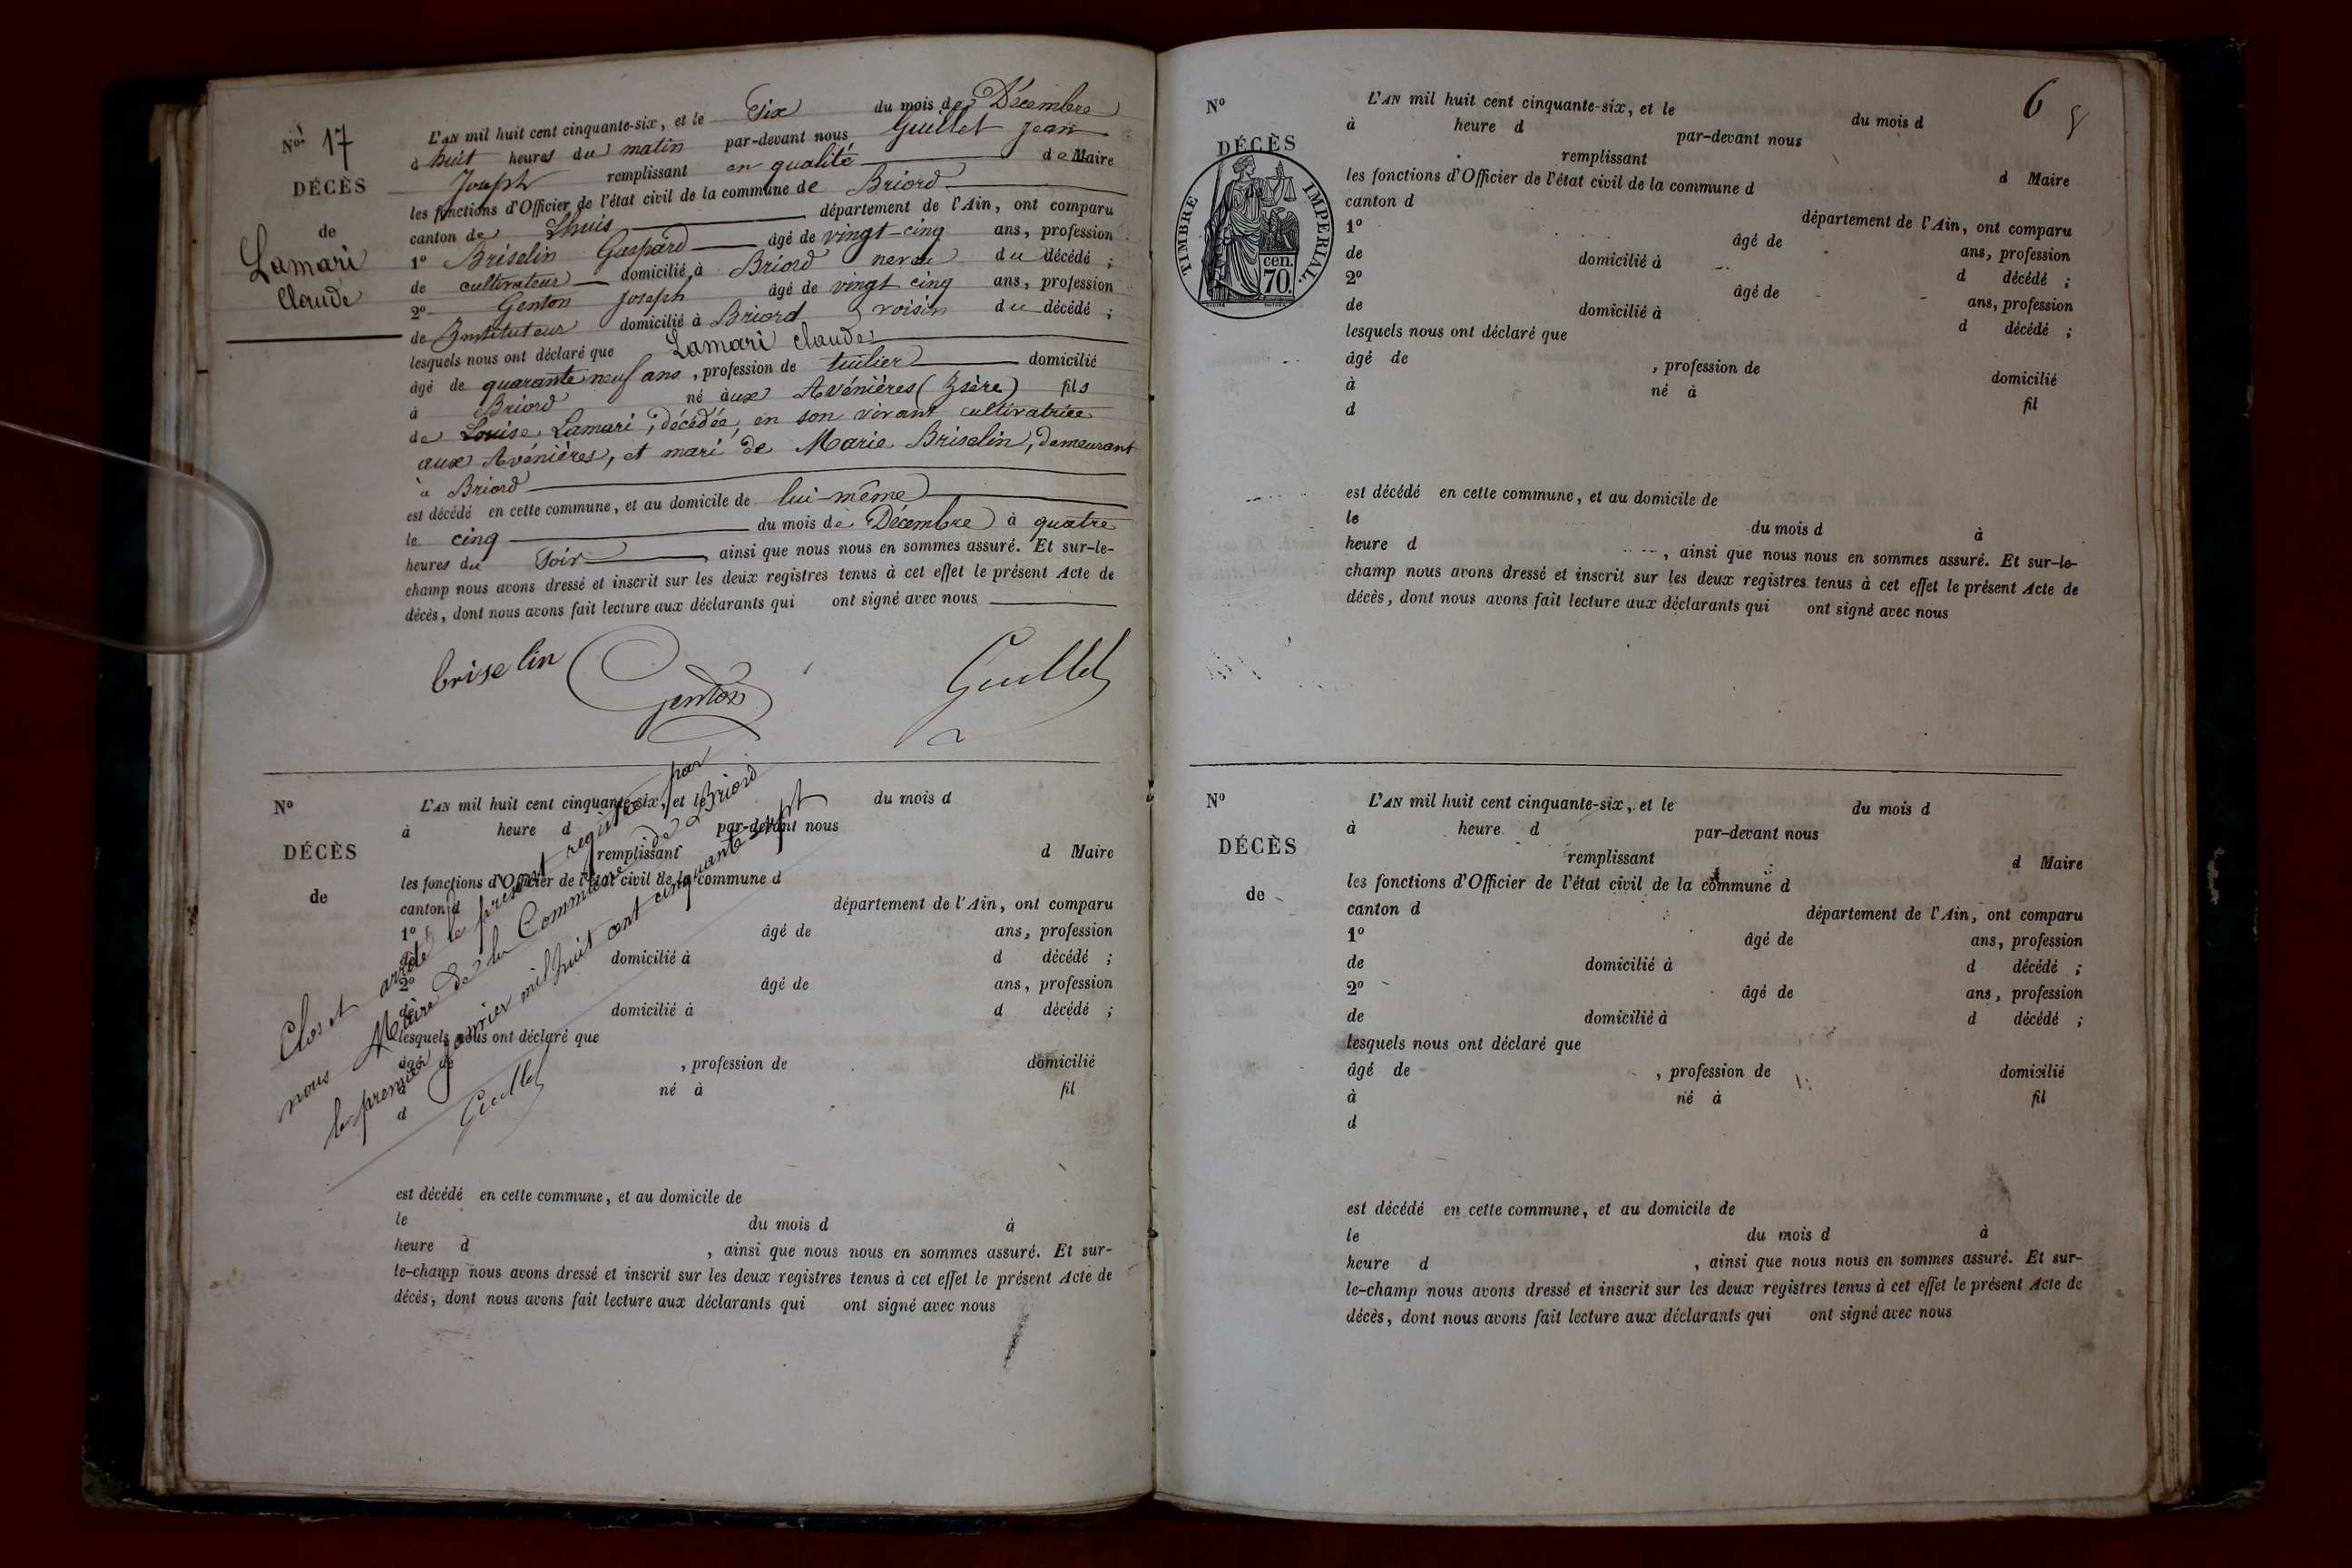 N° 17
DÉCÈS
de
Lamari
Claude
L'AN mil huit cent cinquante-six, et le Six du mois de Décembre
à huit heures du matin par-devant nous Guillet Jean
Joseph remplissant en qualité de Maire
les fonctions d'Officier de l'état civil de la commune de Briord
canton de Lhuis département de l'Ain, ont comparu
1° Briselin Gaspard âgé de vingt-cinq ans, profession
de cultivateur domicilié à Briord neveu du décédé ;
2° Genton Joseph âgé de vingt cinq ans, profession
de Instituteur domicilié à Briord voisin du décédé ;
lesquels nous ont déclaré que Lamari claude
âgé de quarante neuf ans, profession de tuilier domicilié
à Briord né aux Avénières (Isère) fils
de Louise Lamari, décédée, en son vivant cultivatrice
aux Avénières, et mari de Marie Briselin, demeurant
à Briord
est décédé en cette commune, et au domicile de lui-même
le cinq du mois de Décembre à quatre
heures du Soir, ainsi que nous nous en sommes assuré. Et sur-le-
champ nous avons dressé et inscrit sur les deux registres tenus à cet effet le présent Acte de
décès, dont nous avons fait lecture aux déclarants qui ont signé avec nous
briselin Genton Guillet
N°
DÉCÈS
de
L'AN mil huit cent cinquante-six, et le du mois d
à heure d par-devant nous
remplissant d Maire
les fonctions d'Officier de l'état civil de la commune d
canton d département de l'Ain, ont comparu
1° âgé de ans, profession
de domicilié à d décédé ;
2° âgé de ans, profession
de domicilié à d décédé ;
lesquels nous ont déclaré que
âgé de , profession de domicilié
à né à fil
d
Clos et arrêté le présent registre par
nous Maire de la Commune de Briord
le premier Janvier mil huit cent cinquante sept
Guillet
est décédé en cette commune, et au domicile de
le du mois d à
heure d , ainsi que nous nous en sommes assuré. Et sur-
le-champ nous avons dressé et inscrit sur les deux registres tenus à cet effet le présent Acte de
décès, dont nous avons fait lecture aux déclarants qui ont signé avec nous
6
N°
DÉCÈS
TIMBRE IMPERIAL
cen.
70.
L'AN mil huit cent cinquante-six, et le du mois d
à heure d par-devant nous
remplissant d Maire
les fonctions d'Officier de l'état civil de la commune d
canton d département de l'Ain, ont comparu
1° âgé de ans, profession
de domicilié à d décédé ;
2° âgé de ans, profession
de domicilié à d décédé ;
lesquels nous ont déclaré que
âgé de , profession de domicilié
à né à fil
d
est décédé en cette commune, et au domicile de
le du mois d à
heure d , ainsi que nous nous en sommes assuré. Et sur-le-
champ nous avons dressé et inscrit sur les deux registres tenus à cet effet le présent Acte de
décès, dont nous avons fait lecture aux déclarants qui ont signé avec nous
N°
DÉCÈS
de
L'AN mil huit cent cinquante-six, et le du mois d
à heure d par-devant nous
remplissant d Maire
les fonctions d'Officier de l'état civil de la commune d
canton d département de l'Ain, ont comparu
1° âgé de ans, profession
de domicilié à d décédé ;
2° âgé de ans, profession
de domicilié à d décédé ;
lesquels nous ont déclaré que
âgé de , profession de domicilié
à né à fil
d
est décédé en cette commune, et au domicile de
le du mois d à
heure d , ainsi que nous nous en sommes assuré. Et sur-
le-champ nous avons dressé et inscrit sur les deux registres tenus à cet effet le présent Acte de
décès, dont nous avons fait lecture aux déclarants qui ont signé avec nous